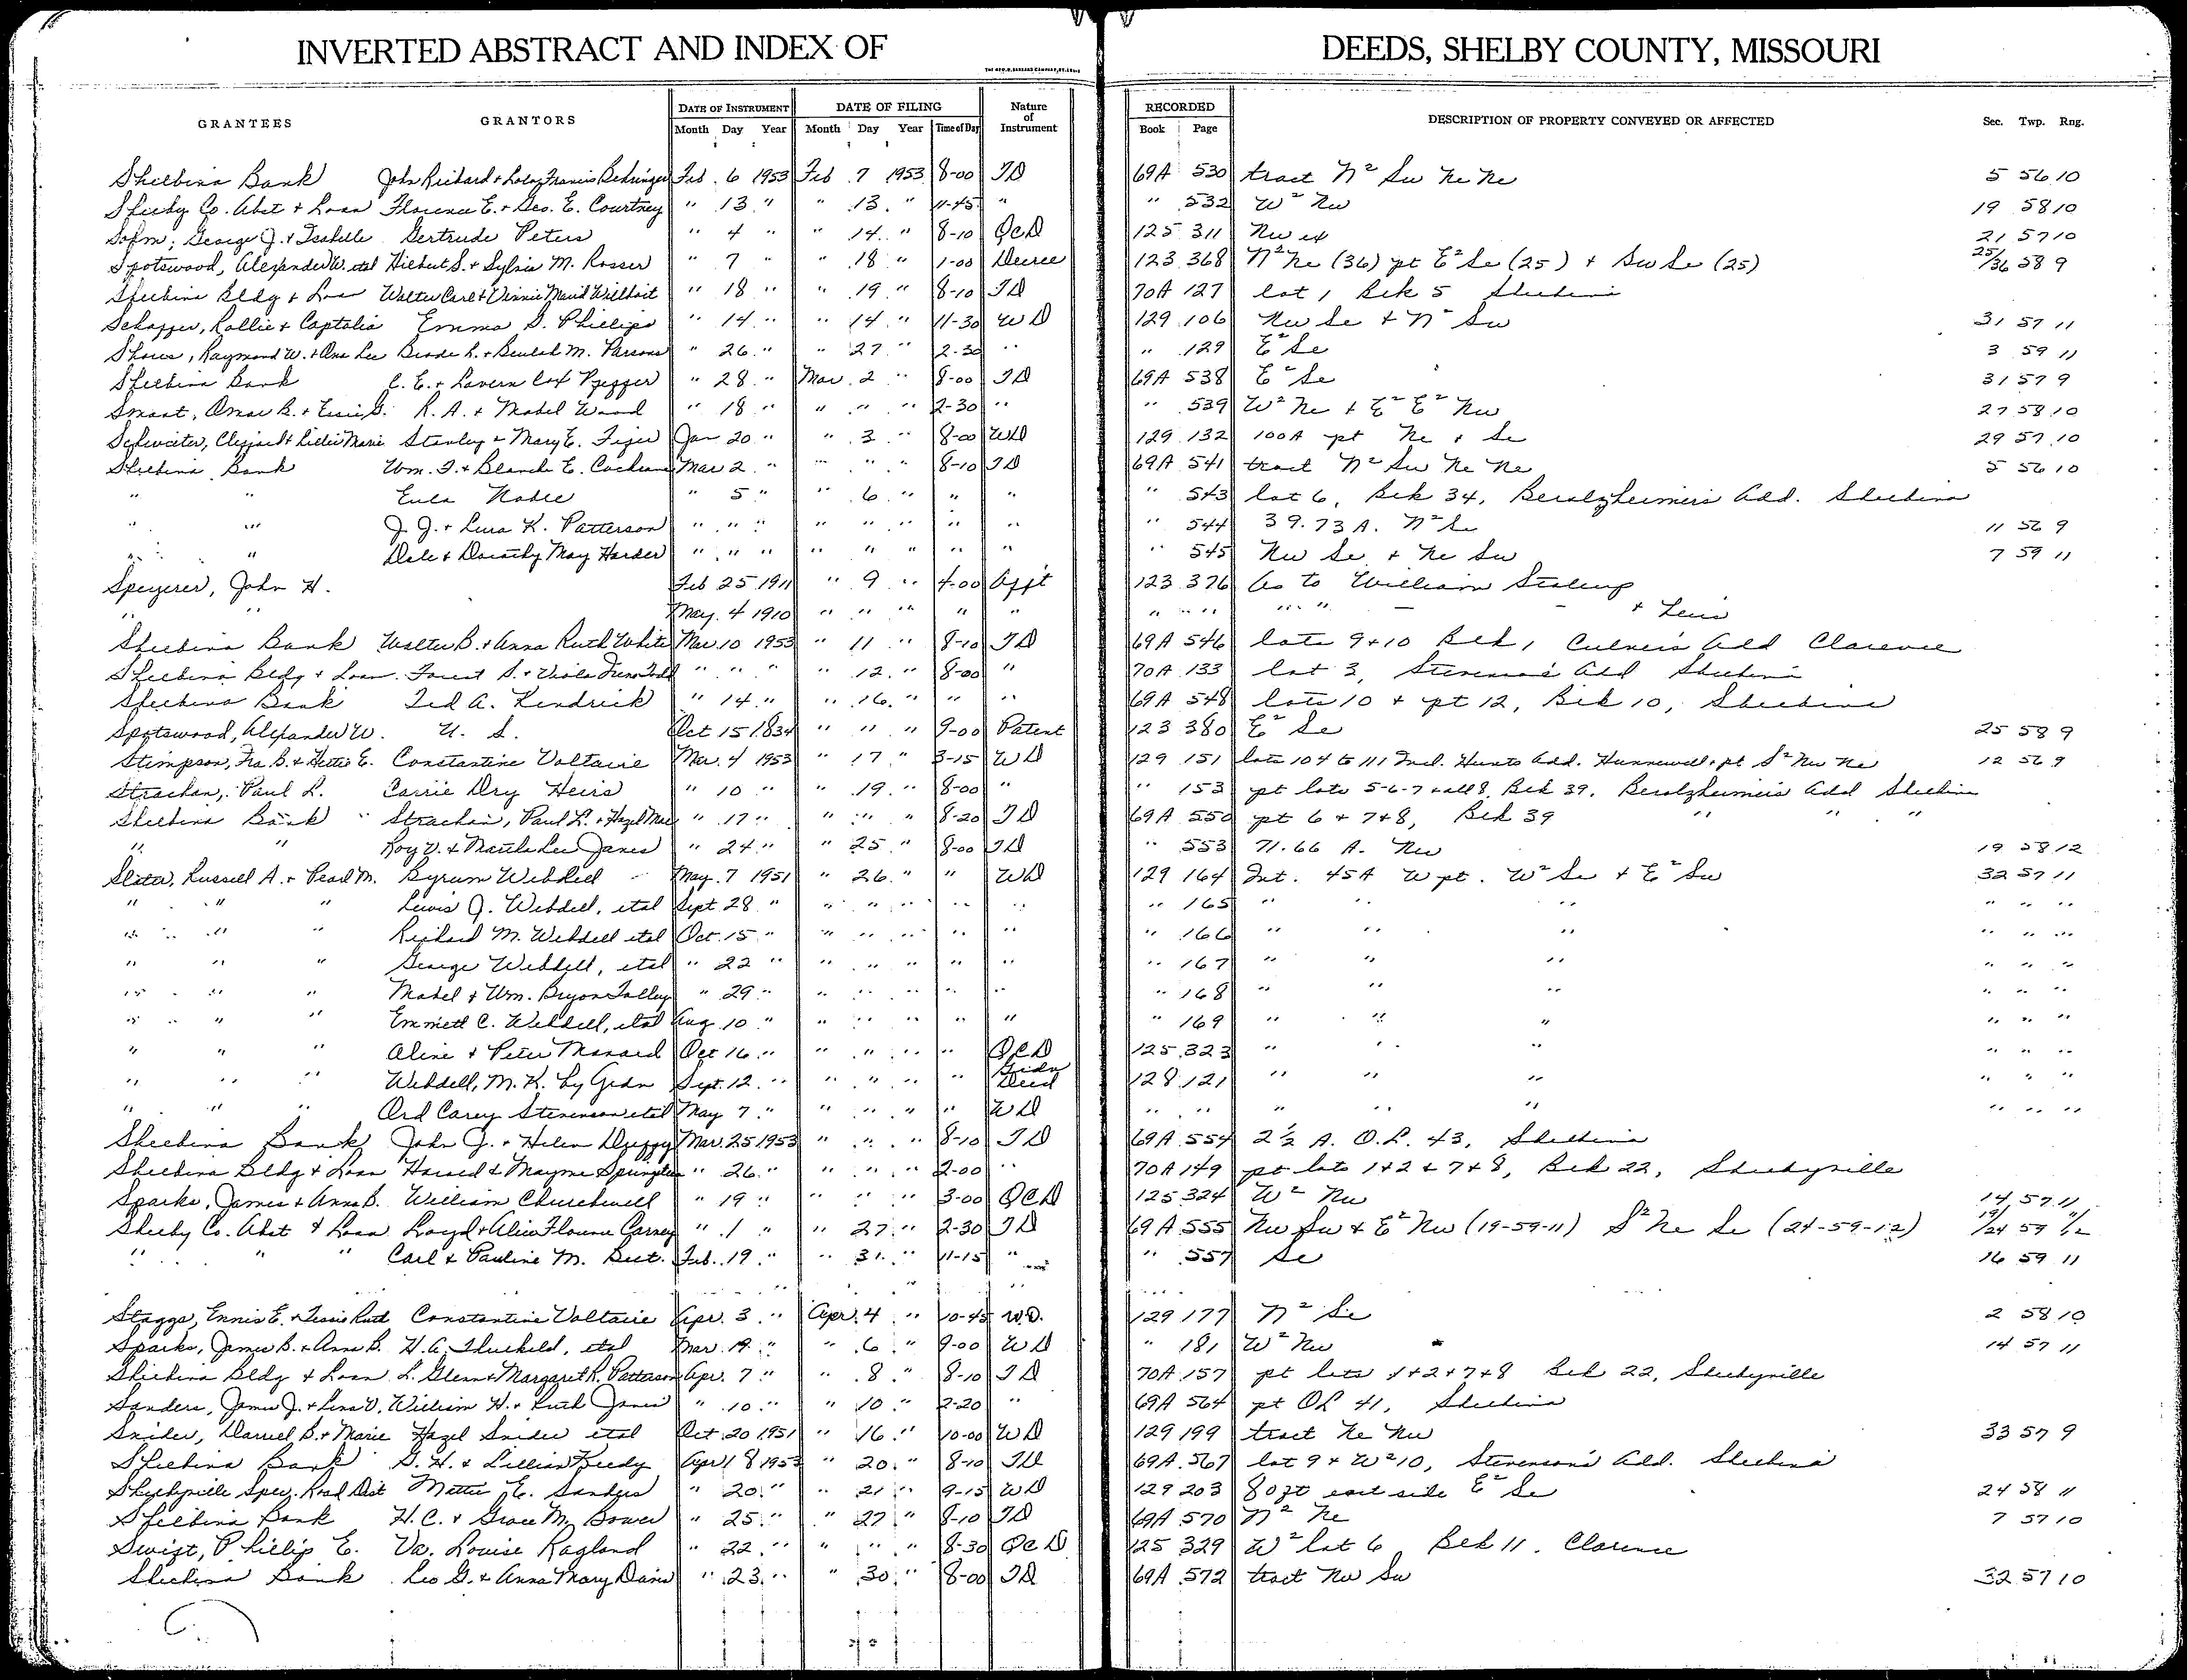 INVERTED ABSTRACT AND INDEX OF DEEDS, SHELBY COUNTY, MISSOURI
GRANTEES GRANTORS DATE OF INSTRUMENT DATE OF FILING Nature of Instrument RECORDED DESCRIPTION OF PROPERTY CONVEYED OR AFFECTED Sec. Twp. Rng.
Month Day Year Month Day Year Time of Day Book Page
Shelbina Bank John Richard + Francis Behringer Feb. 6 1953 Feb 7 1953 8-00 TD 69A 530 tract N² Sw Ne Ne 5 56 10
Shelby Co. Abst + Loan Florence E. + Geo. E. Courtney " 13 " " 13 " 11-45 " " 532 W² Nw 19 58 10
George J. + Isabelle Gertrude Peters " 4 " " 14 " 8-10 QCD 125 311 Nw ex 21 57 10
Spotswood, Alexander W. etal Hilbert S. + Sylvia M. Rosser " 7 " " 18 " 1-00 Decree 123 368 N² Ne (36) pt E² Se (25) + Sw Se (25) 25/36 58 9
Shelbina Bldg + Loan Walter Carl + Vinnie Wilhoit " 18 " " 19 " 8-10 TD 70A 127 lot 1 Blk 5 Shelbina
Rollie + Captolia Emma S. Phillips " 14 " " 14 " 11-30 WD 129 106 Nw Se + N² Sw 31 57 11
Shores, Raymond W. + Ona Lee Brade L. + Beulah M. Parsons " 26 " " 27 " 2-30 " " 129 E² Se 3 59 11
Shelbina Bank C. E. + Lavern " 28 " Mar. 2 " 8-00 TD 69A 538 E² Se 31 57 9
Smoot, Omar B. + Essie G. R. A. + Mabel Wood " 18 " " " " 2-30 " " 539 W² Ne + E² E² Nw 27 58 10
Stanley + Mary E. Jan 20 " " 3 " 8-00 WD 129 132 100A pt Ne + Se 29 57 10
Shelbina Bank Wm. T. + Blanche E. Cochran Mar 2 " " " " 8-10 TD 69A 541 tract N² Sw Ne Ne 5 56 10
" " Eula Noble " 5 " " 6 " " " " 543 lot 6, Blk 34, Beralzheimer's Add. Shelbina
" " J. J. + Lura K. Patterson " " " " " " " " " 544 39.73 A. N² Se 11 56 9
" " Dale + Dorothy May Harder " " " " " " " " " 545 Nw Se + Ne Sw 7 59 11
Speyerer, John H. Feb 25 1911 " 9 " 4-00 Afft 123 376 As to William
" " May. 4 1910 " " " " " " " " " + Lewis
Shelbina Bank Walter B. + Anna Ruth White Mar. 10 1953 " 11 " 8-10 TD 69A 546 lots 9+10 Blk 1 Culver's Add Clarence
Shelbina Bldg + Loan Forrest S. + Viola " " " " 12 " 8-00 " 70A 133 lot 3, Stevenson's Add Shelbina
Shelbina Bank Ted A. Kendrick " 14 " " 16 " " " 69A 548 lots 10 + pt 12, Blk 10, Shelbina
Spotswood, Alexander W. U. S. Oct 15 1834 " " " 9-00 Patent 123 380 E² Se 25 58 9
Stimpson, Ira B. + Hettie E. Constantine Voltaire Mar. 4 1953 " 17 " 3-15 WD 129 151 lots 104 to 111 Incl. Hunts Add. Hunnewell + pt S² Nw Ne 12 56 9
Strachan, Paul L. Carrie Dry Heirs " 10 " " 19 " 8-00 " " 153 pt lots 5-6-7 + all 8, Blk 39, Beralzheimer's Add Shelbina
Shelbina Bank Strachan, Paul L. + Hazel Mae " 17 " " " " 8-20 TD 69A 550 pt 6 + 7+8, Blk 39 " " "
" " Roy V. + Lee Janes " 24 " " 25 " 8-00 TD " 553 71.66 A. Nw 19 58 12
Slater, Russell A. + Pearl M. Byrum Weddell May. 7 1951 " 26 " " WD 129 164 Int. 45A W pt. W² Se + E² Sw 32 57 11
" " " Lewis J. Weddell, etal Sept 28 " " " " " " " 165 " " " " " "
" " " Richard M. Weddell etal Oct. 15 " " " " " " " 166 " " " " " "
" " " George Weddell, etal " 22 " " " " " " " 167 " " " " " "
" " " Mabel + Wm. Bryon Talley " 29 " " " " " " " 168 " " " " " "
" " " Emmett C. Weddell, etal Aug. 10 " " " " " " " 169 " " " " " "
" " " Aline + Peter Oct 16 " " " " " QCD 125 323 " " " " " "
" " " Weddell, M. K. by Grdn Sept. 12 " " " " " Grdn Deed 128 121 " " " " " "
" " " Ord Carey Stevenson etal May 7 " " " " " WD " " " " " " " "
Shelbina Bank John J. + Helen Mar. 25 1953 " " " 8-10 TD 69A 554 2½ A. O.L. 43, Shelbina
Shelbina Bldg + Loan Harold + Mayme " 26 " " " " 2-00 " 70A 149 pt lots 1+2 + 7+8, Blk 22, Shelbyville
Sparks, James + Anna B. William Churchwell " 19 " " " " 3-00 QCD 125 324 W² Nw 14 57 11
Shelby Co. Abst + Loan Loyd + Alice Florence Carney " 1 " " 27 " 2-30 TD 69A 555 Nw Sw + E² Nw (19-59-11) S² Ne Se (24-59-12) 19/24 59 11/12
" " " Carl + Pauline M. Feb. 19 " " 31 " 11-15 " " 557 Se 16 59 11
Staggs, Ennis E. + Ruth Constantine Voltaire Apr. 3 " Apr. 4 " 10-45 W.D. 129 177 N² Se 2 58 10
Sparks, James B. + Anna B. H. A. etal Mar. 19 " " 6 " 9-00 WD " 181 W² Nw 14 57 11
Shelbina Bldg + Loan L. Glenn + Margaret R. Patterson Apr. 7 " " 8 " 8-10 TD 70A 157 pt lots 1+2+7+8 Blk 22, Shelbyville
Sanders, James J. + Lena V. William H. + Ruth Janes " 10 " " 10 " 2-20 " 69A 564 pt OL 41, Shelbina
Snider, Darrel B. + Marie Hazel Snider etal Oct. 20 1951 " 16 " 10-00 WD 129 199 tract Ne Nw 33 57 9
Shelbina Bank G. H. + Lillian Apr 18 1953 " 20 " 8-10 TD 69A 567 lot 9 + W² 10, Stevenson's Add. Shelbina
Shelbyville Spec. Road Dist Mattie E. Sanders " 20 " " 21 " 9-15 WD 129 203 80 ft east side E² Se 24 58 11
Shelbina Bank H. C. + Grace M. Bower " 25 " " 27 " 8-10 TD 69A 570 N² Ne 7 57 10
Swift, Phillip E. Va. Louise Ragland " 22 " " " " 8-30 QCD 125 329 W² lot 6 Blk 11. Clarence
Shelbina Bank Leo G. + Anna Mary Davis " 23 " " 30 " 8-00 TD 69A 572 tract Nw Sw 32 57 10